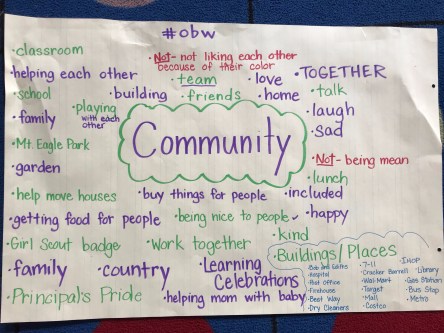 #obw
·classroom
·Not- not liking each other
because of their color
·helping each other
·team
·love
·TOGETHER
·school
·building
·friends
·home
·talk
·family
·playing
with each
other
·laugh
Community
·sad
·Mt. Eagle Park
·Not- being mean
·garden
·lunch
·help move houses
·buy things for people
·included
·getting food for people
·being nice to people
·happy
·kind
·Girl Scout badge
·Work together
·Buildings/Places
·family
·country
·Learning
Celebrations
·Principal's Pride
·helping mom with baby
·Bob and Ediths
·Hospital
·Post Office
·Firehouse
·Best Way
·Dry Cleaners
·7-11
·Cracker Barrell
·Wal-Mart
·Target
·Mall
·Costco
·IHOP
·Library
·Gas Station
·Bus Stop
·Metro